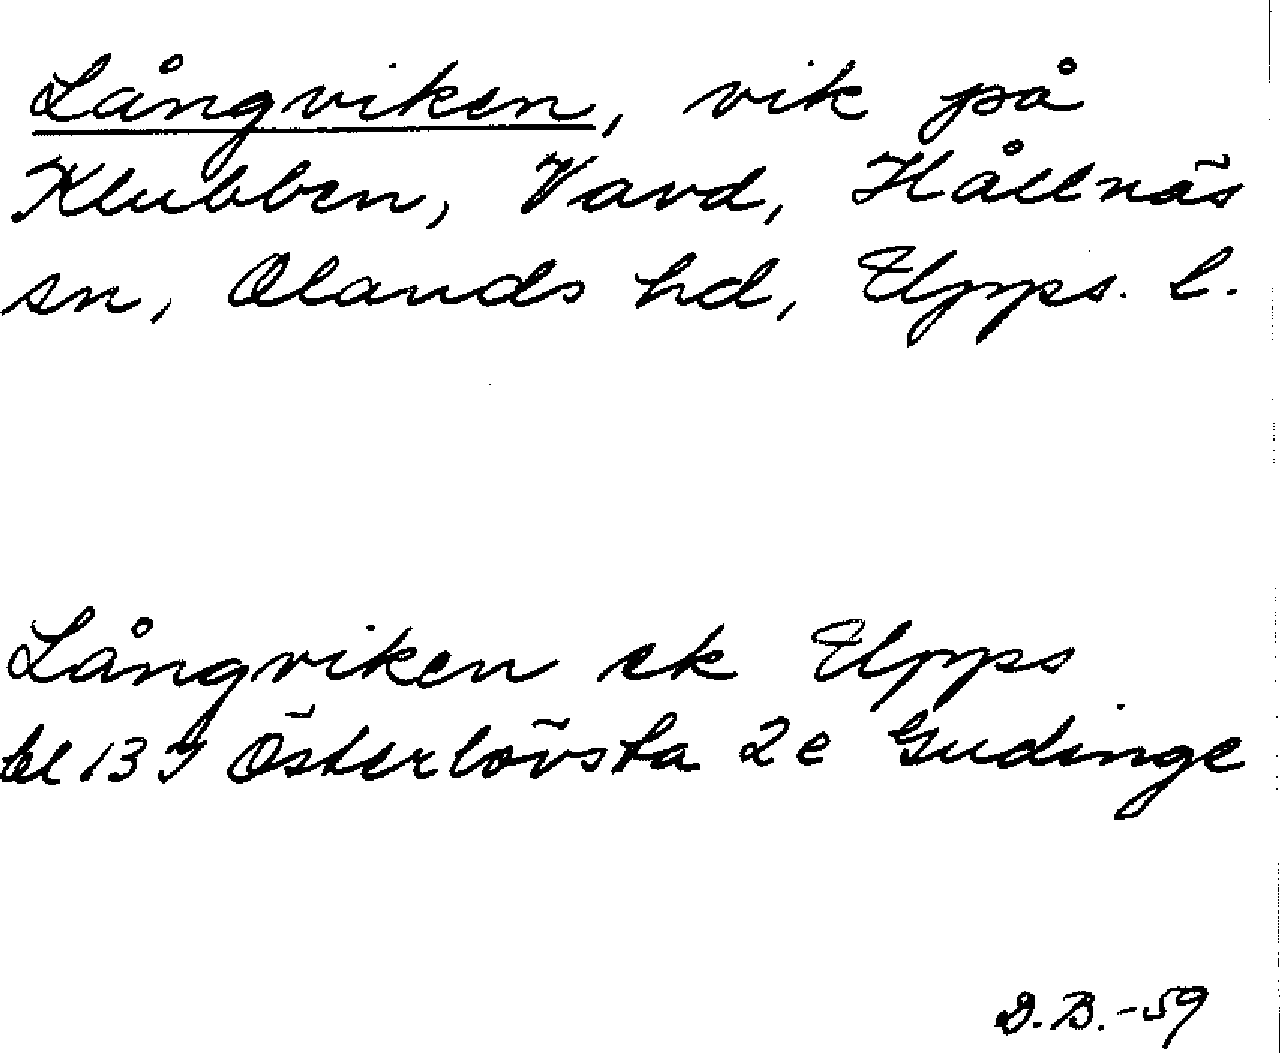 Långviken, vik på
Klubben, Vavd, Hållnäs
sn, Olands hd, Upps. l.
Långviken ek Upps
bl 139 Österlövsta 2e Gudinge
D.B.-59